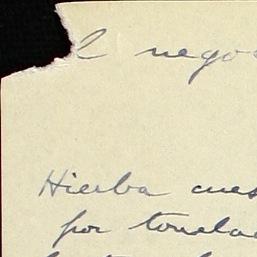 l nego
Hierba cues
por tonelad